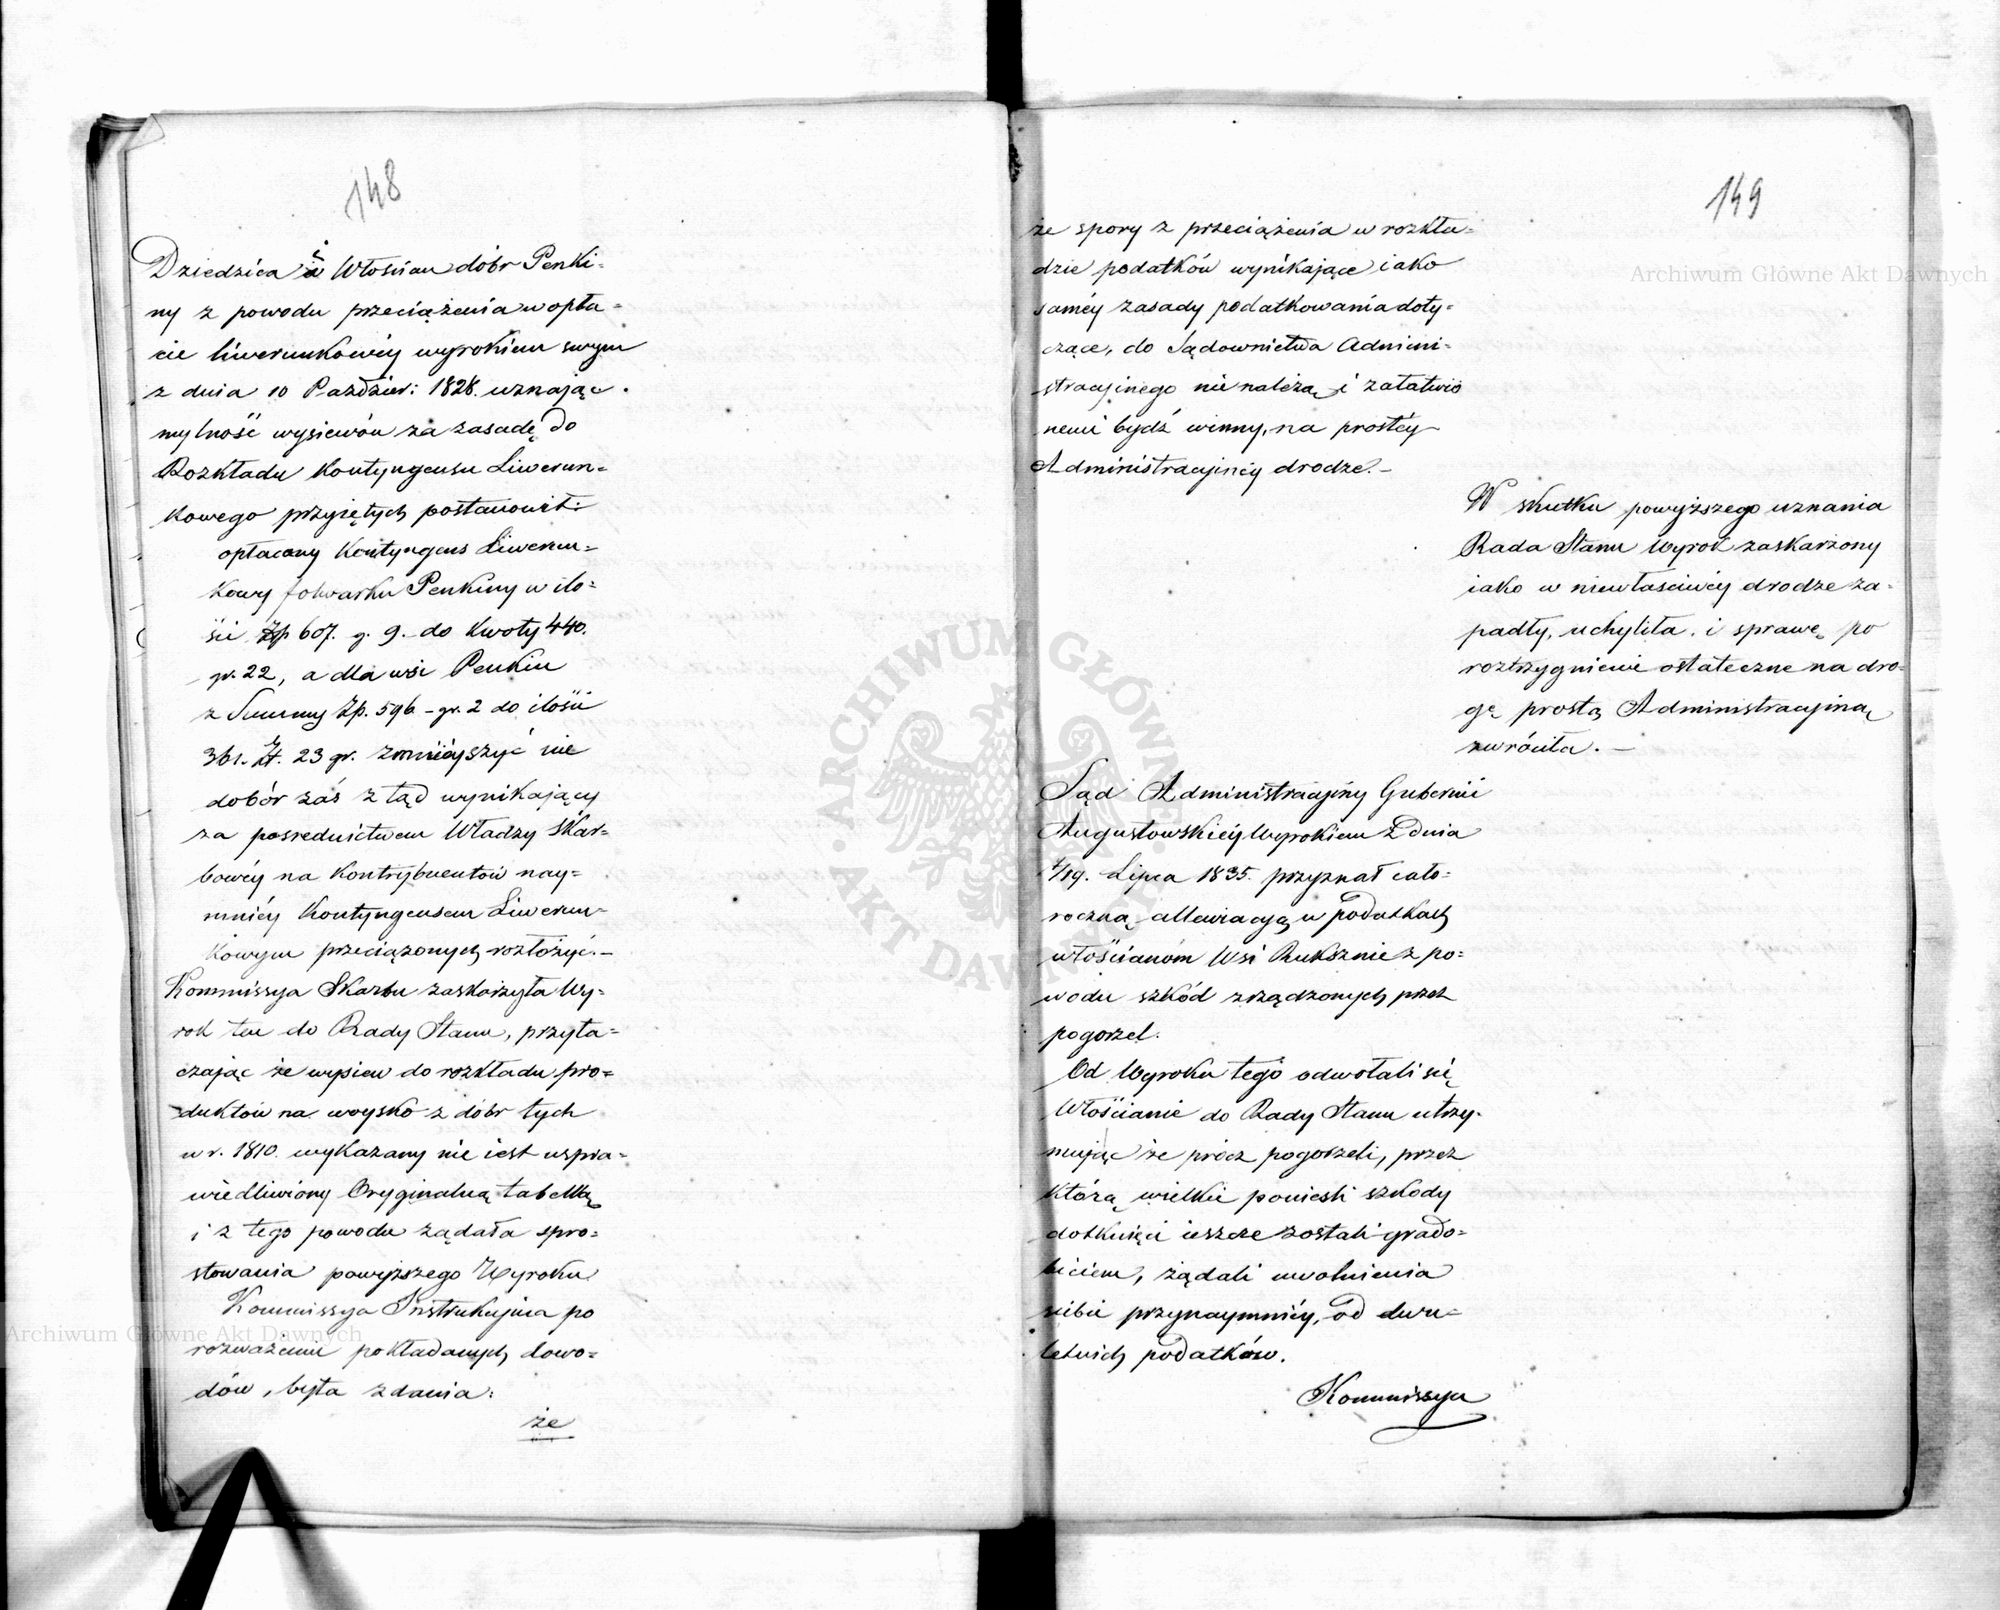 148
Dziedzica i Włościan dobr Penki-
ny z powodu przeciążenia w opła-
cie liwerunkowéy wyrokiem swym
z dnia 10 Paździer: 1828. uznając
mylność wysiewów za zasadę do
Rozkładu Kontyngensu Liwerun-
kowego przyiętych postanowił:
opłacany Kontyngens Liwerun-
kowy folwarku Penkiny w ilo-
ści Zp 607. g. 9. do kwoty 440.
gr. 22, a dla wsi Penkin
z Summy Zp. 596 - gr. 2 do ilości
361. Zł. 23 gr. zmnieyszyć nie
dobór zaś z tąd wynikaiący
za posrednictwem Władzy Skar-
bowéy na Kontrybuentów nay-
mniéy Kontyngensem Liwerun-
kowym przeciążonych rozłożyć.-
Kommissya Skarbu zaskarżyła Wy-
rok ten do Rady Stanu, przyta-
czając że wysiew do rozkładu pro-
duktów na woysko z dóbr tych
w r. 1810. wykazany nie iest uspra-
wiedliwiony Oryginalną tabellą
i z tego powodu żądała spro-
stowania powyższego Wyroku
Kommissya Instrukcyina po
rozważeniu pokładanych dowo-
dów, była zdania:
że
149
że spory z przeciążenia w rozkła-
dzie podatków wynikające iako
saméy zasady podatkowania doty-
czące, do Sądownictwa Admini-
stracyinego nie należą i załatwio
nemi bydź winny, na prostéy
Administracyinéy drodze.-
W skutku powyższego uznania
Rada Stanu Wyrok zaskarżony
iako w niewłaściwéy drodze za-
padły, uchyliła. i sprawę po
roztrzygnienie ostateczne na dro-
gę prostą Administracyiną
zwróciła. -
Sąd Administracyiny Gubernii
Augustowskiéy Wyrokiem z dnia
7/19. Lipca 1835. przyznał cało-
roczną allewiacyą w podatkach
włościanóm Wsi Ruksznie z po-
wodu szkód zrządzonych przez
pogorzel.
Od Wyroku tego odwołali się
Włościanie do Rady Stanu utrzy-
mując że prócz pogorzeli, przez
którą wielkie ponieśli szkody
dotknięci ieszcze zostali grado-
biciem, żądali uwolnienia
siebie przynaymniéy, od dwu-
letnich podatków.
Kommissya